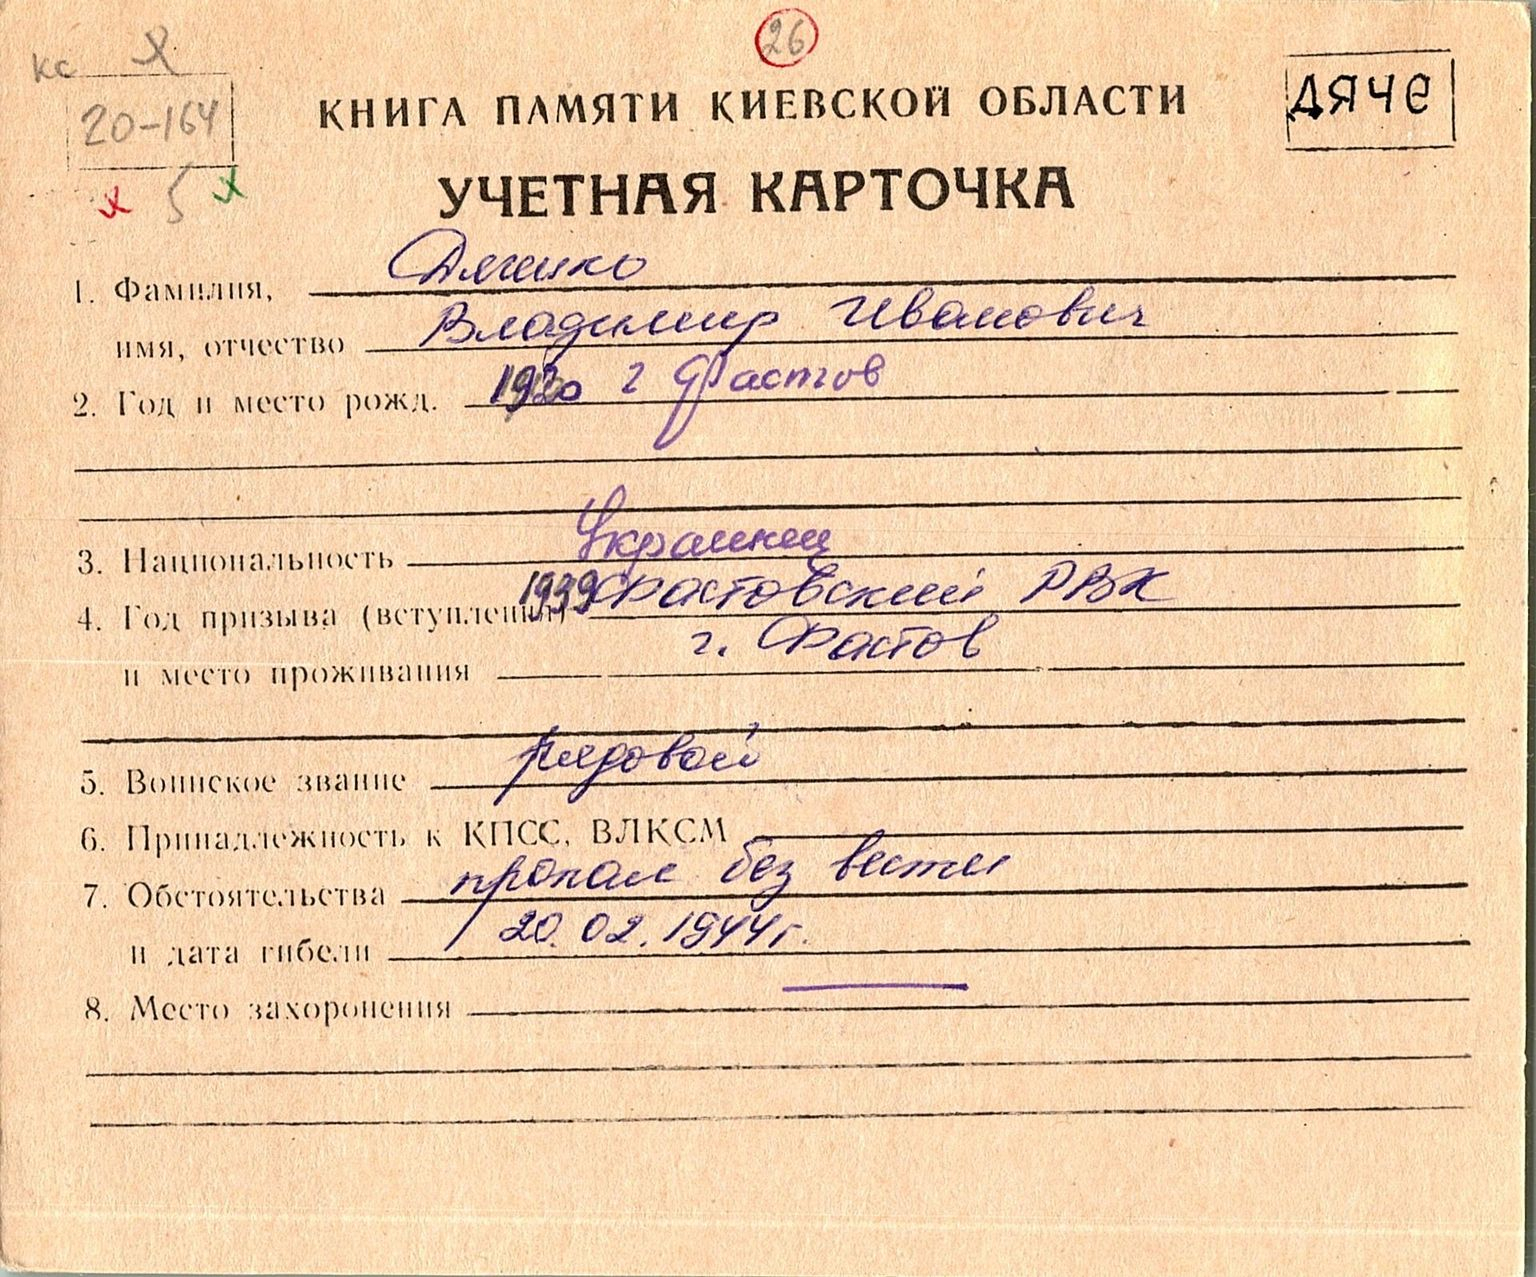 26
кс х
20-164
5
КНИГА ПАМЯТИ КИЕВСКОЙ ОБЛАСТИ
ДЯЧЕ
УЧЕТНАЯ КАРТОЧКА
1. Фамилия, Дяченко
имя, отчество Владимир Иванович
2. Год и место рожд. 1920 г Фастов
3. Национальность Украинец
4. Год призыва (вступления) 1939 Фастовский РВК
и место проживания г. Фастов
5. Воинское звание рядовой
6. Принадлежность к КПСС, ВЛКСМ
7. Обстоятельства пропал без вести
и дата гибели 20.02.1944г.
8. Место захоронения